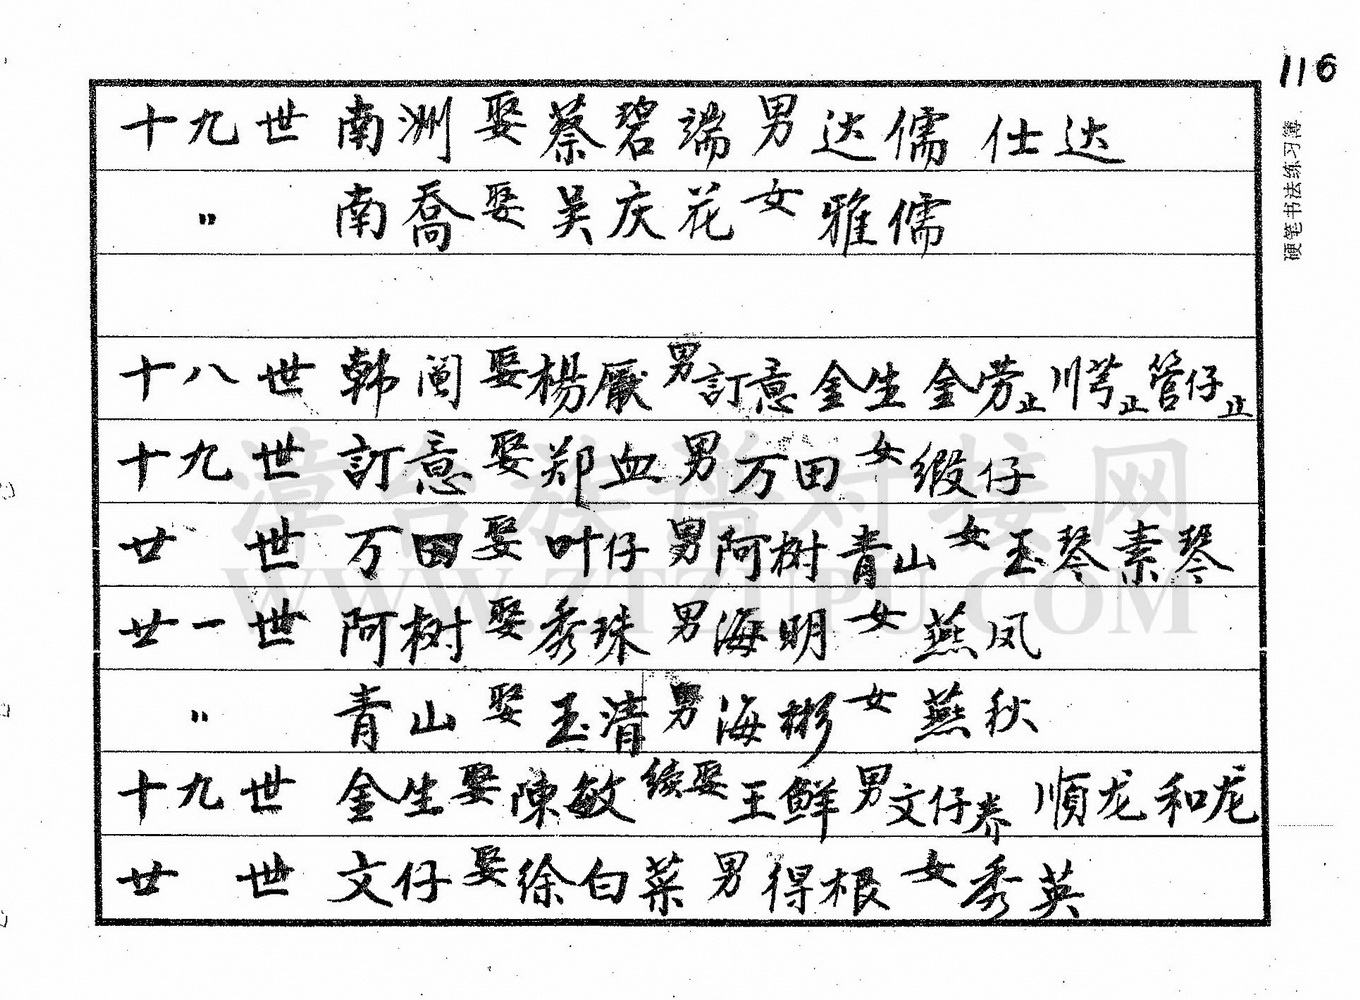 116
十九世 南洲 娶 蔡碧端 男 达儒 仕达
〃 南喬 娶 吴庆花 女 雅儒
十八世 韩闽 娶 楊厭 男 訂意 金生 金劳止 川 止 管仔止
十九世 訂意 娶 郑血 男 万田 女 缎仔
廿 世 万田 娶 叶仔 男 阿树 青山 女 玉琴 素琴
廿一世 阿树 娶 秀珠 男 海明 女 燕凤
〃 青山 娶 玉清 男 海彬 女 燕秋
十九世 金生 娶 陳敏 续娶 王鲜 男 文仔养 順龙 和龙
廿 世 文仔 娶 徐白菜 男 得根 女 秀英
硬笔书法练习簿
漳台族谱对接网
WWW.ZTZUPU.COM